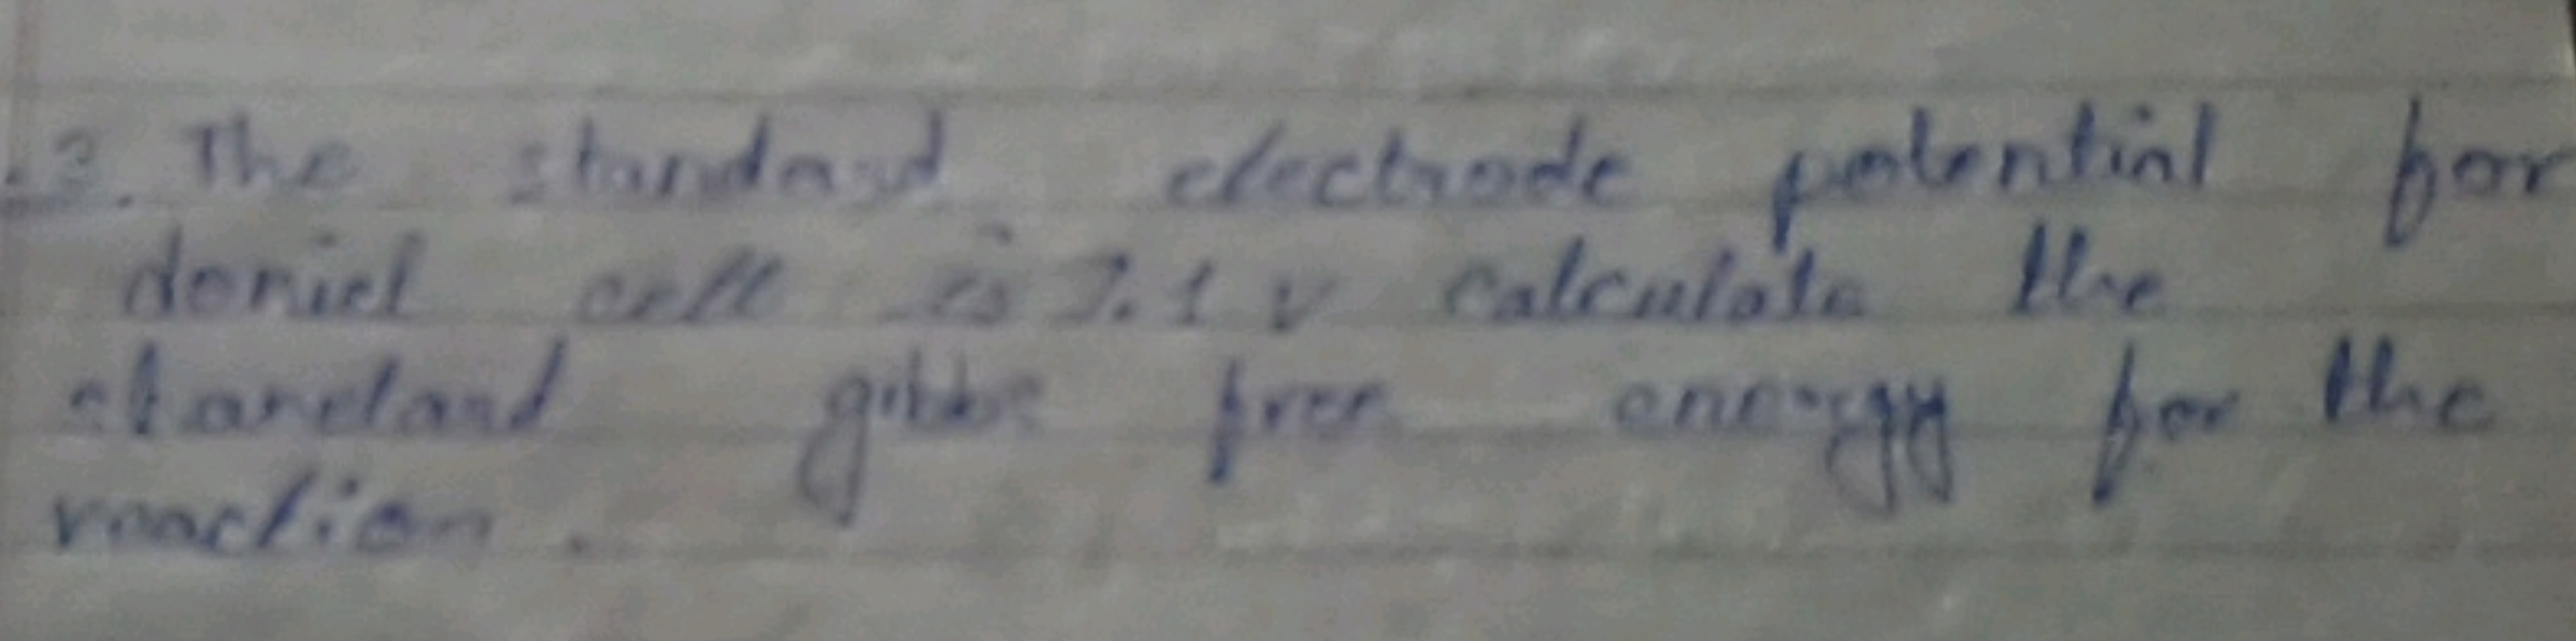 .3. The standard electrode potential for
deniel cell is 1.1 v calculate the
standard gibbs free energy for the
reaction.